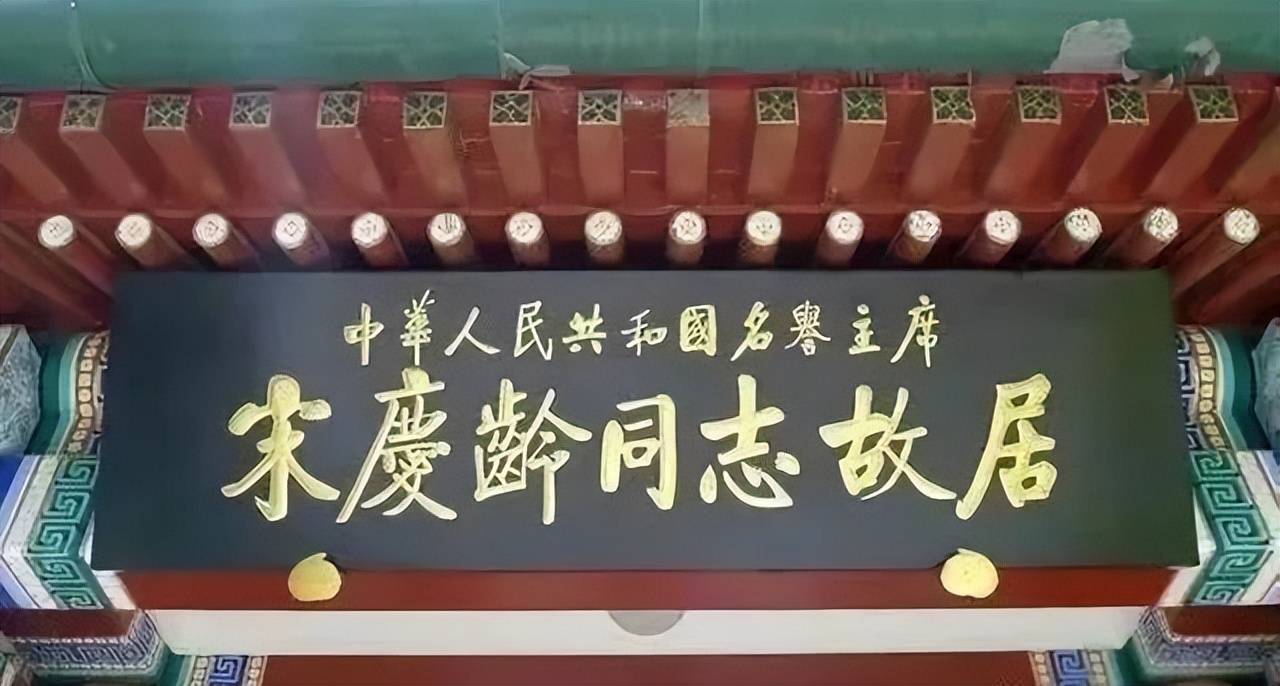 中華人民共和國名譽主席
宋慶齡同志故居